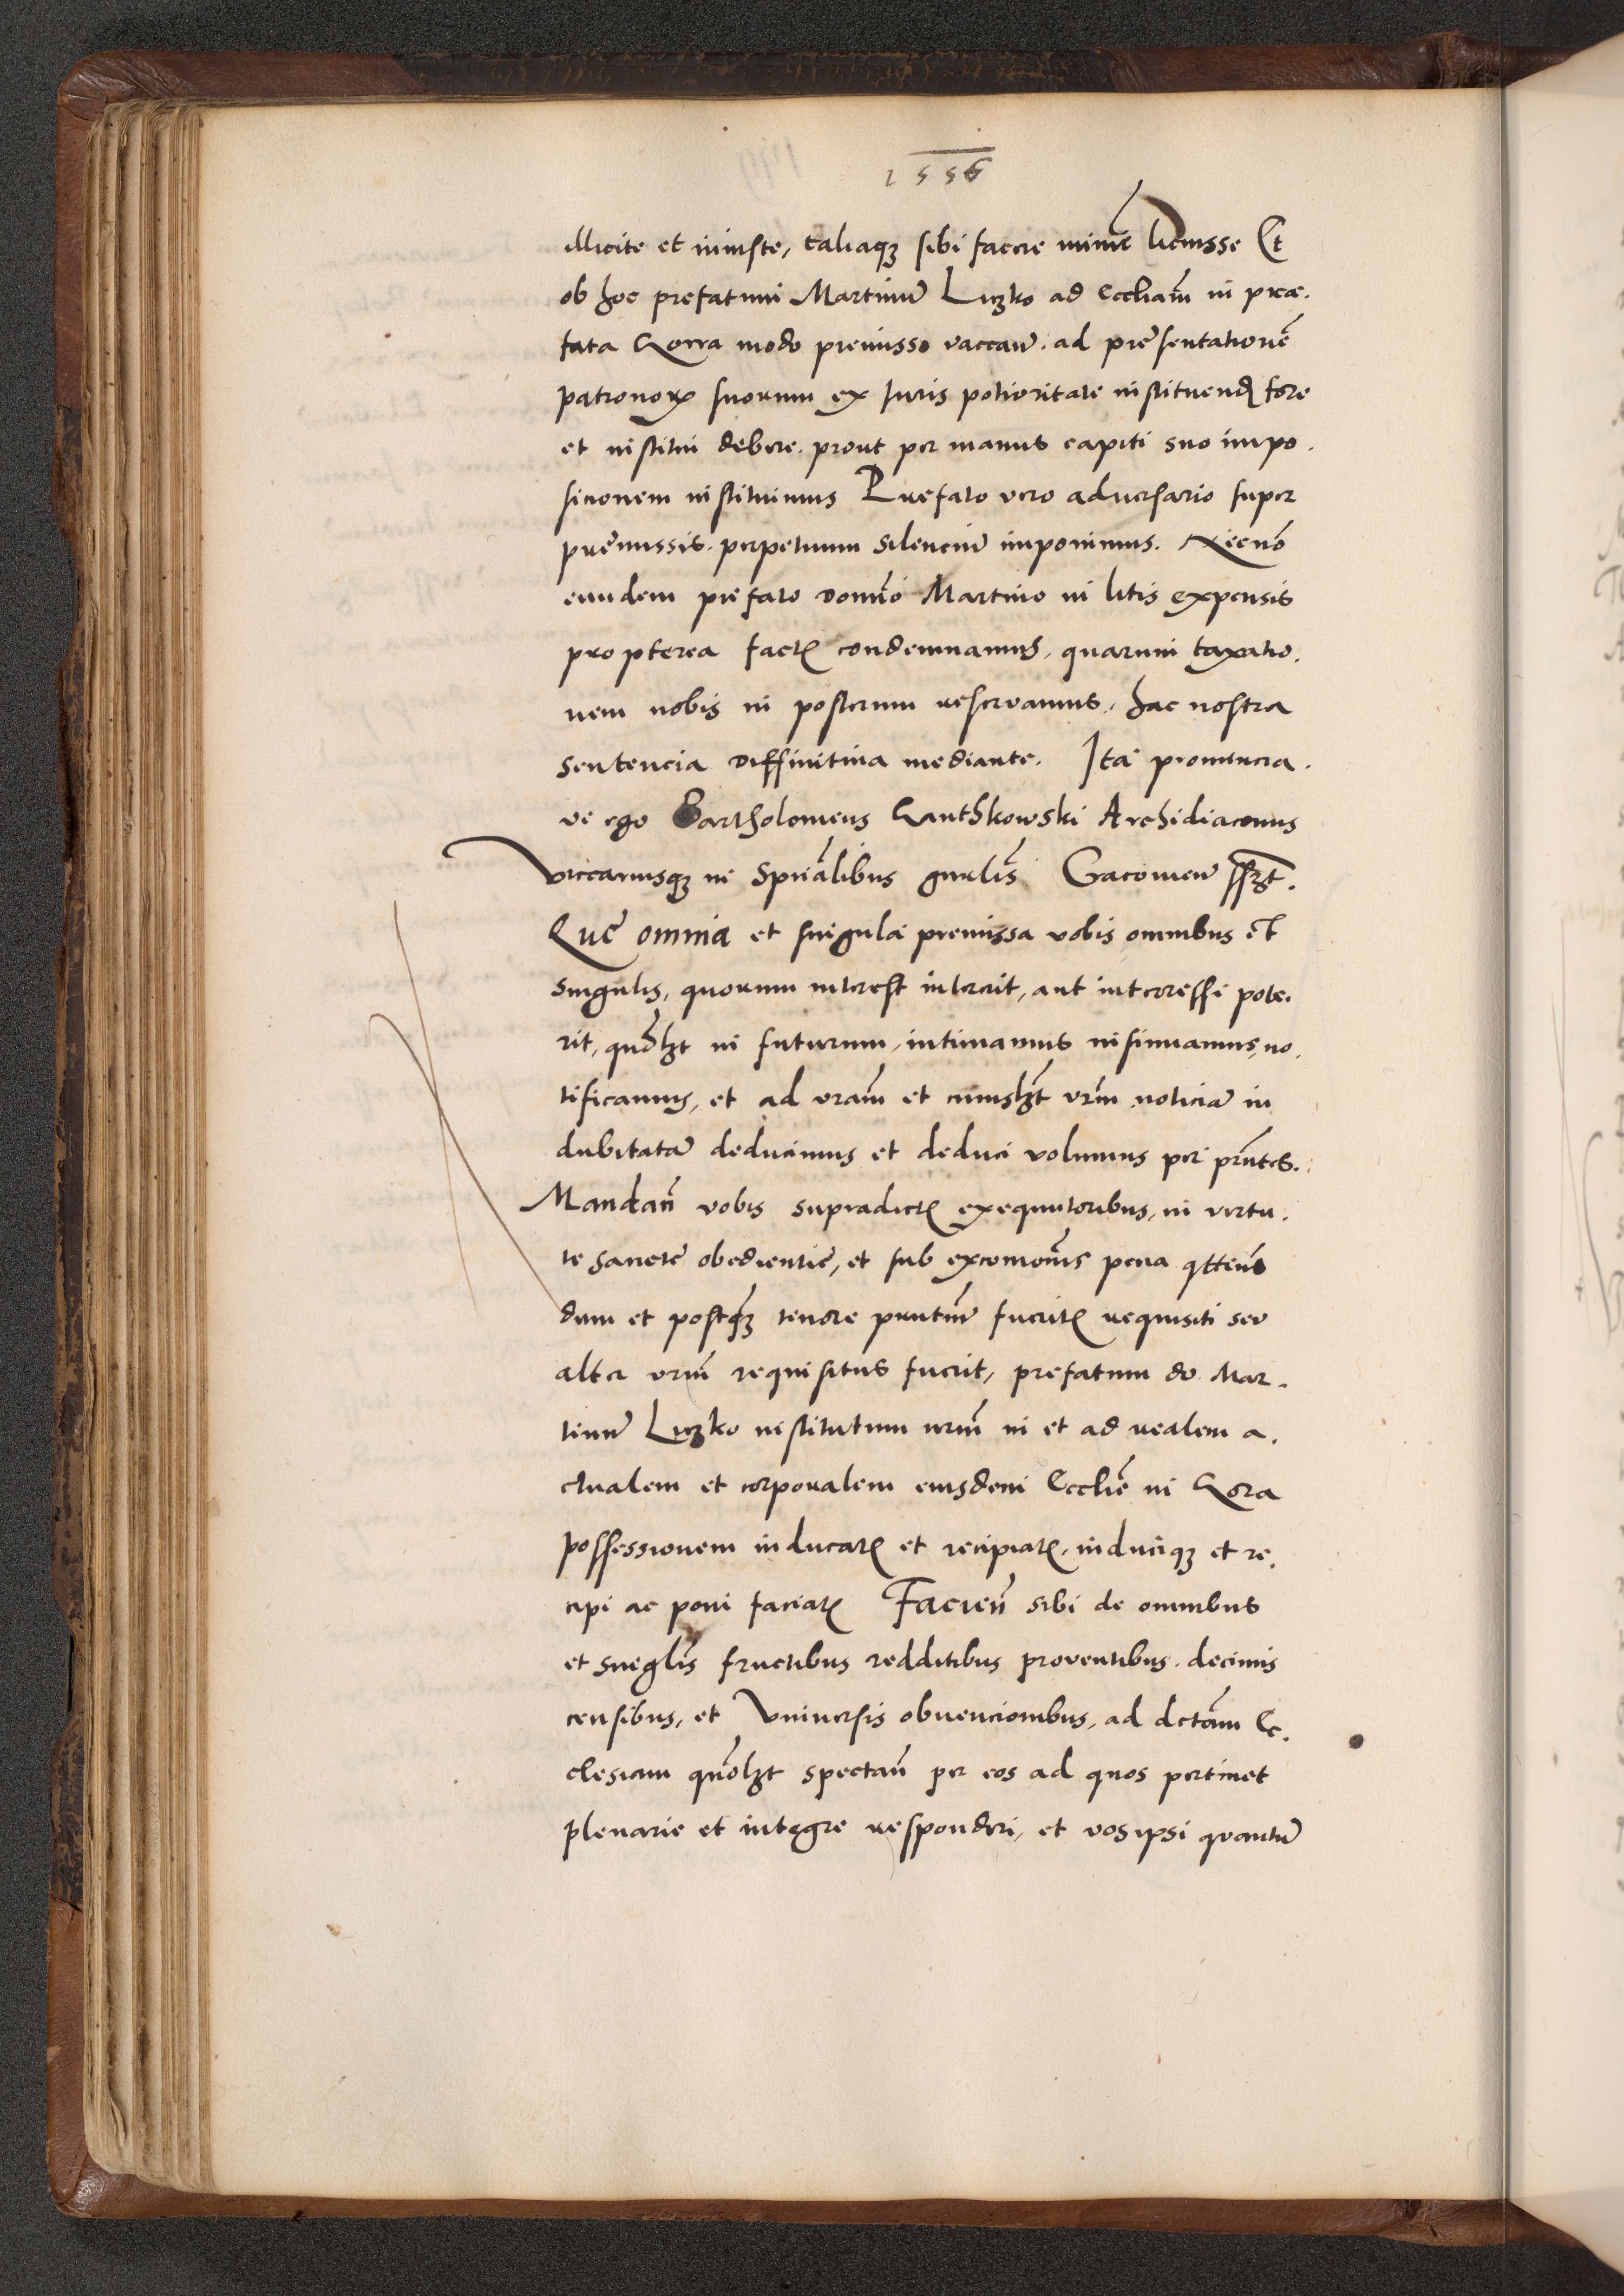 1556
illicite et iniuste, taliaqꝫ sibi facere minime licuisse Et
ob hoc prefatum Martinū Luzko ad Eccliam̄ in præ.
fata Gorra modo premisso vaccan̄. ad presentationē
patronoꝝ suorum ex Iuris potioritate instituend̄ fore
et institui debere. prout per manus capiti suo impo.
sicionem instituimus Prefato vero aduersario super
premissis. perpetuum silenciū imponimus. Necnō
eundem prefato domīo Martino in litis expensis
propterea fact̄ condemnamus, quarum taxatio.
nem nobis in posterum reservamus, hac nostra
sentencia diffinitiua mediante. Ita pronuncia.
vi ego Bartholomeus Ganthkowski Archidiaconus
viccariusqꝫ in Spiritālibus gnrlīs
Que omnia et singula premissa vobis omnibus et
singulis, quorum interest intererit, aut interesse pote.
rit, quōlꝫt in futurum, intimamus insinuamus, no.
tificamus, et ad vram̄ et cuiuslꝫt vrm̄ noticiā in
dubitatā deducimus et deduci volumus per pn̄tes.
Mandan̄ vobis supradict̄ exequutoribus, in virtu.
te sancte obedientie, et sub excomōnis pena qtten̄
dum et postqꝫ tenore pn̄tiū fuerit̄ requisiti seu
alter vrm̄ requisitus fuerit, prefatum do. Mar.
tinū Luzko institutum nrm̄ in et ad realem a.
ctualem et corporalem eiusdem Ecclie in Gora
possessionem inducat̄ et recipiat̄, induciqꝫ et re.
cipi ac poni faciat̄ Facien̄ sibi de omnibus
et singlīs fructibus redditibus proventibus. decimis
censibus, et Vniuersis obuencionibus, ad dctam̄ Ec.
clesiam quōlꝫt spectan̄ per eos ad quos pertinet
plenarie et integre responderi, et vos ipsi quantū